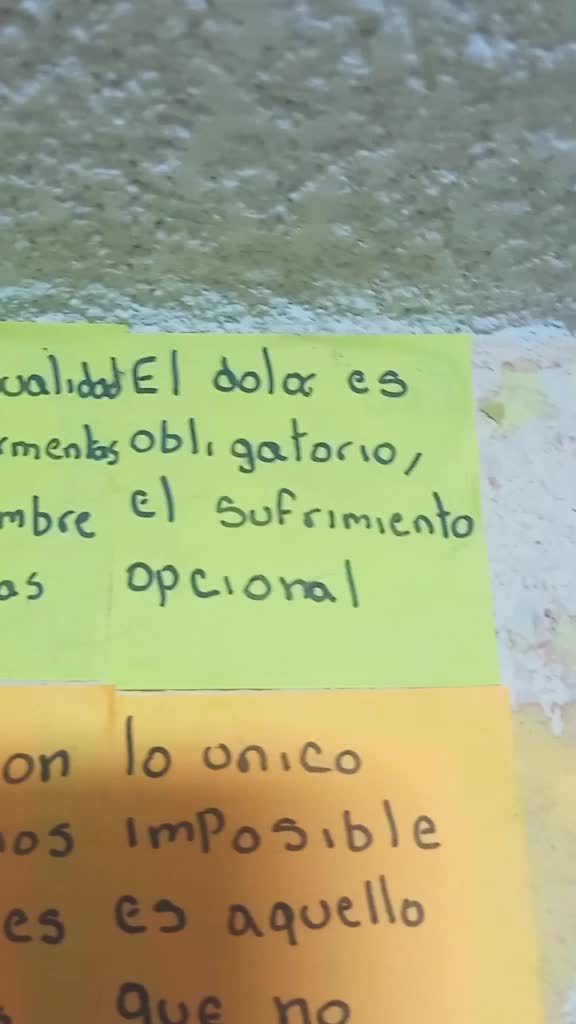 ualidad
mentos
mbre
as
El dolor es
obligatorio,
el sufrimiento
opcional
on
os
es
lo unico
imposible
es aquello
que no